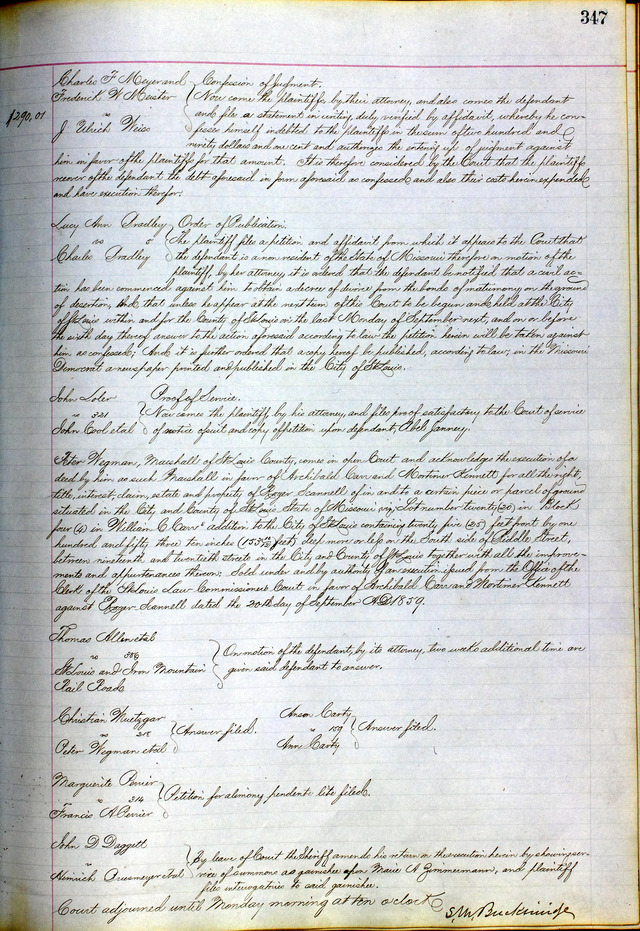 347
Charles F Meyer and } Confession of Judgment.
Frederick W Meister } Now come the plaintiffs by their attorney, and also comes the defendant
$290,01
vs } and file a statement in writing duly verified by affidavit, whereby he con-
J Ulrich Weiss } fesses himself indebted to the plaintiffs in the sum of two hundred and
ninety dollars and one cent and authorizes the entering up of judgment against
him in favor of the plaintiffs for that amount. It is therefore considered by the Court that the plaintiffs
recover of the defendant, the debt aforesaid in form aforesaid as confessed and also their costs herein expended
and have execution therefor.
Lucy Ann Bradley } Order of Publication.
vs 5 } The plaintiff files a petition and affidavit from which it appears to the Court that
Charles Bradley } the defendant is a non resident of the State of Missouri therefore on motion of the
plaintiff, by her attorney, it is ordered that the defendant be notified that a civil ac-
tion has been commenced against him to obtain a decree of divorce from the bonds of matrimony on the ground
of desertion, that unless he appear at the next term of this Court to be begun and held at the City
of St Louis within and for the County of St Louis on the last Monday of September next, and on or before
the sixth day thereof answer to the action aforesaid according to law the petition herein will be taken against
him as confessed; And it is further ordered that a copy hereof be published, according to law, in the Missouri
Democrat a newspaper printed and published in the City of St Louis.
John Loler } Proof of Service.
vs 321 } Now comes the plaintiff by his attorney, and files proof satisfactory to the Court of service
John Cool et al } of notice of suit and copy of petition upon defendant, Abel Janney.
Peter Wegman, Marshall of St Louis County, comes in open Court and acknowledges the execution of a
deed by him as such Marshall in favor of Archibald Carr and Mortimer Kennett for all the right,
title, interest, claim, estate and property of Roger Scannell of in and to a certain piece or parcel of ground
situated in the City and County of St Louis State of Missouri viz, Lot number twenty (20) in Block
four (4) in William C Carr's addition to the City of St Louis containing twenty five (25) feet front by one
hundred and fifty three ten inches feet, deep more or less on the South side of Biddle Street,
between nineteenth and twentieth streets in the City and County of St Louis together with all the improve-
ments and appurtenances thereon; Sold under and by authority of an execution issued from the Office of the
Clerk of the St Louis Law Commissioners Court in favor of Archibald Carr and Mortimer Kennett
against Roger Scannell dated the 20th day of September A.D. 1859.
Thomas Allen et al
vs 386 } On motion of the defendant, by its attorney, two weeks additional time are
St Louis and Iron Mountain } given said defendant to answer.
Rail Road
Christian Wuetzgar
vs 218 } Answer filed.
Peter Wegman et al
Anson Carty
vs 159 } Answer filed.
Ann Carty
Marguerite Perrier
vs 314 } Petition for alimony pendente lite filed.
Francis A Perrier
John D Daggett
vs } By leave of Court the Sheriff amends his return on the execution herein by showing ser-
Heinrich Duesmeyer et al } vice of summons as garnishee upon Marie A Zimmermann, and plaintiff
files interrogatories to said garnishee.
Court adjourned until Monday morning at ten o'clock
S. M. Buckminge